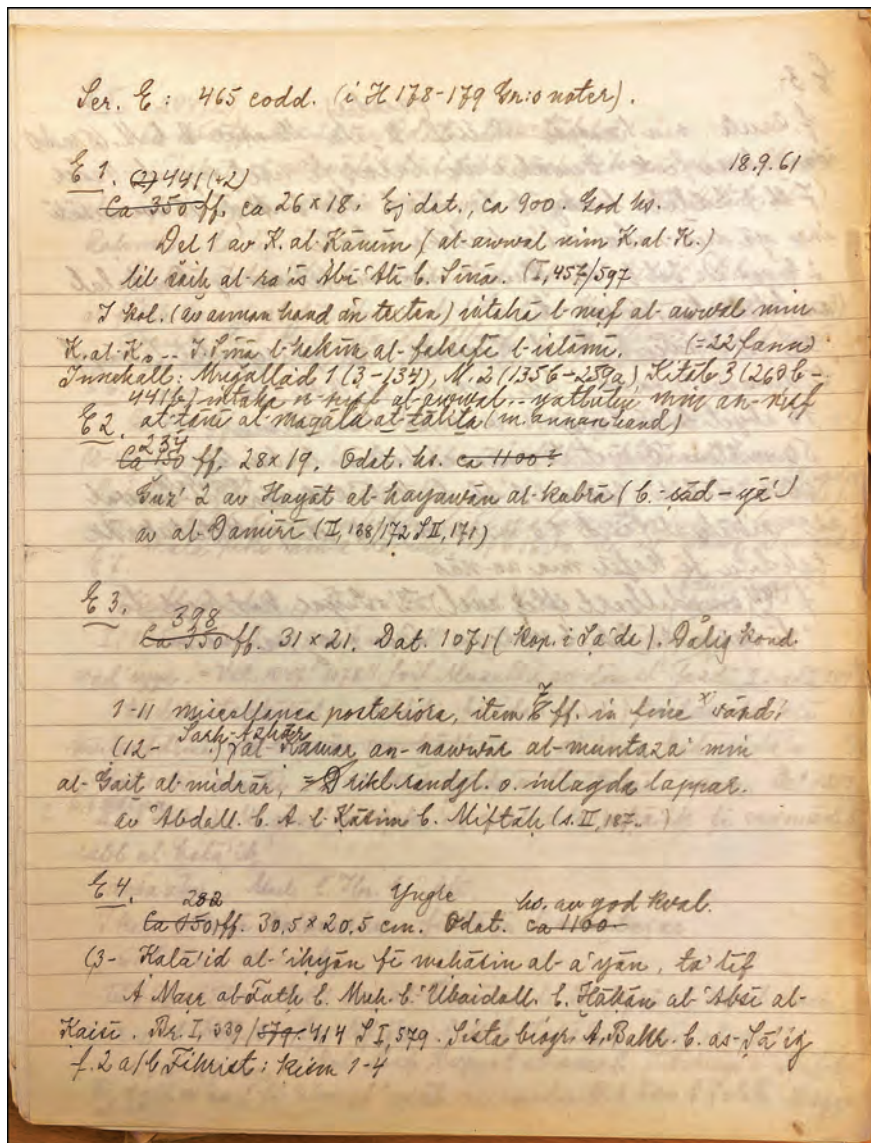 Ser. E : 465 codd. (i H 178-179 En:o noter).
18.9.61
E 1. (2) 441 (+2)
Ca 350 ff. ca 26 x 18. Ej dat., ca 900. God hs.
Del 1 av K. al-Kānūn (al-awwal min K. al-K.)
lil šaiḫ al-ra'īs Abī 'Alī b. Sīnā. (I, 457/597
I kol. (av annan hand än texten) intahā l-niṣf al-awwal min
K. al-K. -- I. Sīnā l-ḥakīm al-falsafī l-islāmī. (=22 fann)
Innehåll: Muǧallad 1 (3-134), M. 2 (135b-259a), Kitāb 3 (260b-
441b) intahā n-niṣf al-awwal -- min an-niṣf
E 2. aṯ-ṯānī al-maqāla aṯ-ṯāliṯa (m. annan hand)
234
Ca 150 ff. 28 x 19. Odat. hs. ca 1100?
Ǧuz' 2 av Ḥayāt al-ḥayawān al-kubrā (b. ṣād - yā')
av al-Damīrī (II, 138/172 S II, 171)
E 3. 398
Ca 350 ff. 31 x 21. Dat. 1071 (kop. i Ṣa'de). Dålig kond.
1-11 miscellanea posteriora, item 7 ff. in fine x) vänd!
(12- ) Šarḥ-Azhār
al- an-nawwār al-muntaza' min
al-Ġait al-midrār, = D rikl. randgl. o. inlagda lappar.
av 'Abdall. b. A. l-Kāsim b. Miftāḥ (s. II, 187.
E 4. 282 Yngre hs. av god kval.
Ca 150 ff. 30,5 x 20,5 cm. Odat. ca 1100
(3- Kalā'id al-'iḳyān fī maḥāsin al-a'yān, ta'līf
A Naṣr al-Fatḥ b. Muḥ. b. 'Ubaidall. b. Ḫāḳān al-'Absī al-
Kaisī. Br. I, 339/579. 414 S I, 579. Sista biogr. A. Bakr. b. aṣ-Ṣā'iġ
f. 2 a/b Fihrist: ḳism 1-4